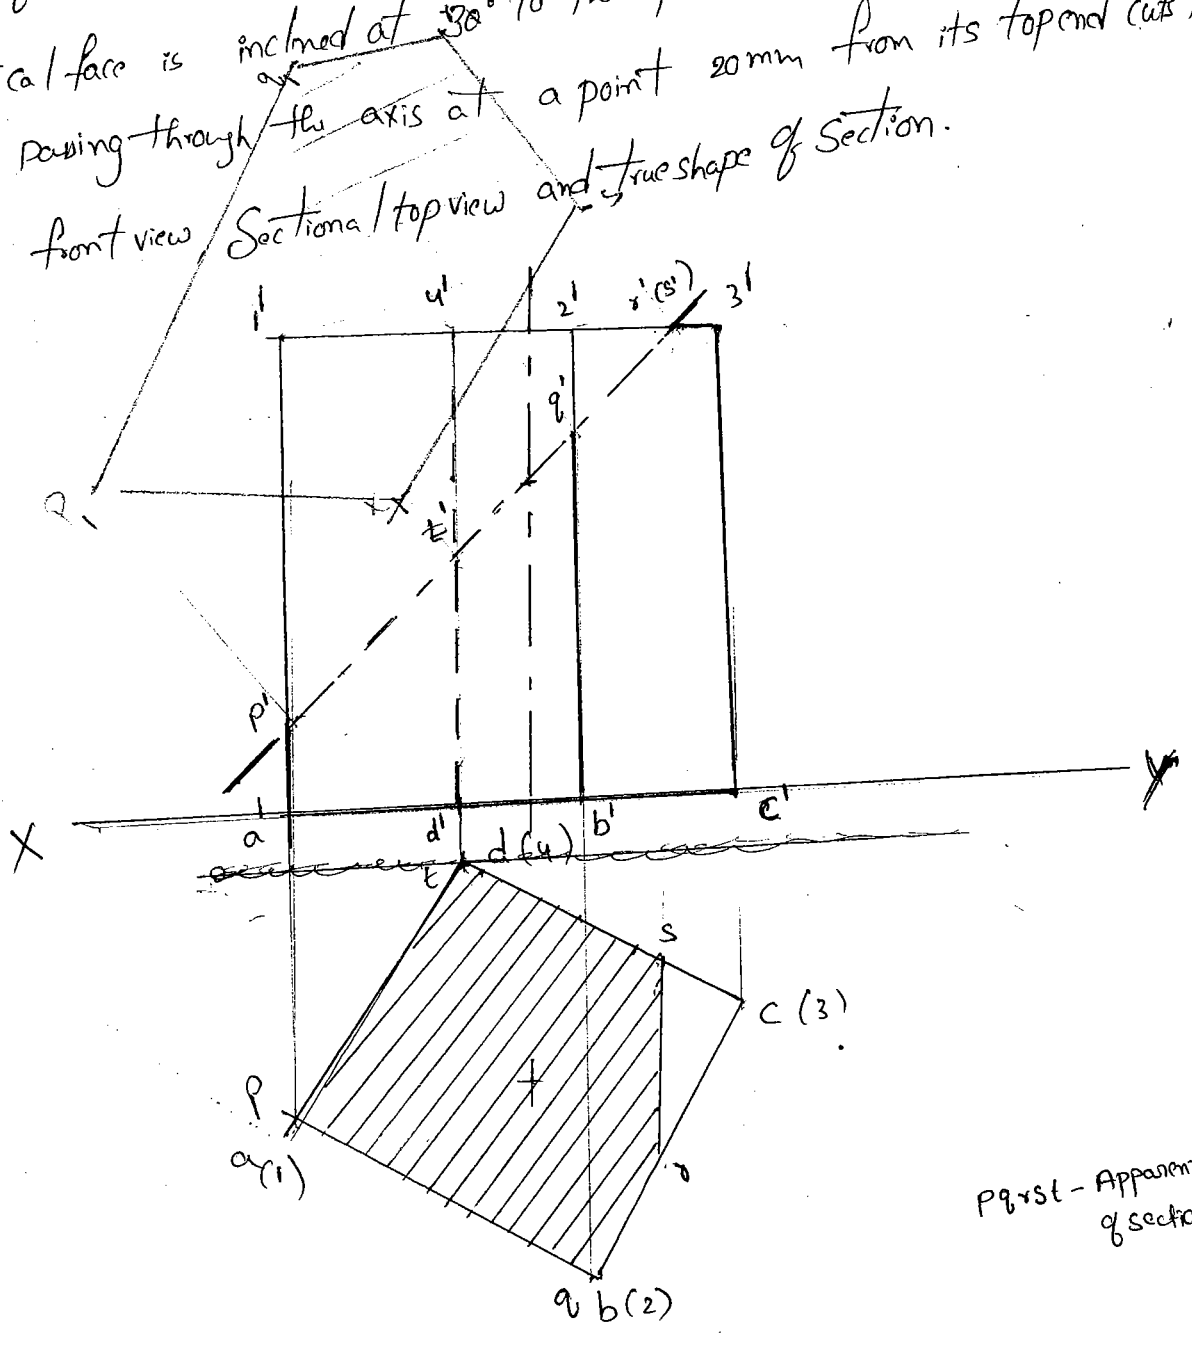 cal face is inclined at 30° to
passing through the axis at a point 20mm from its top end cuts
front view, Sectional top view and true shape of Section.
1' 4' 2' r'(s') 3'
q'
t'
p'
X a' d' b' c' Y
t d(4)
s
c(3)
p
a(1)
r
pqrst - Apparen
of sectio
q b(2)